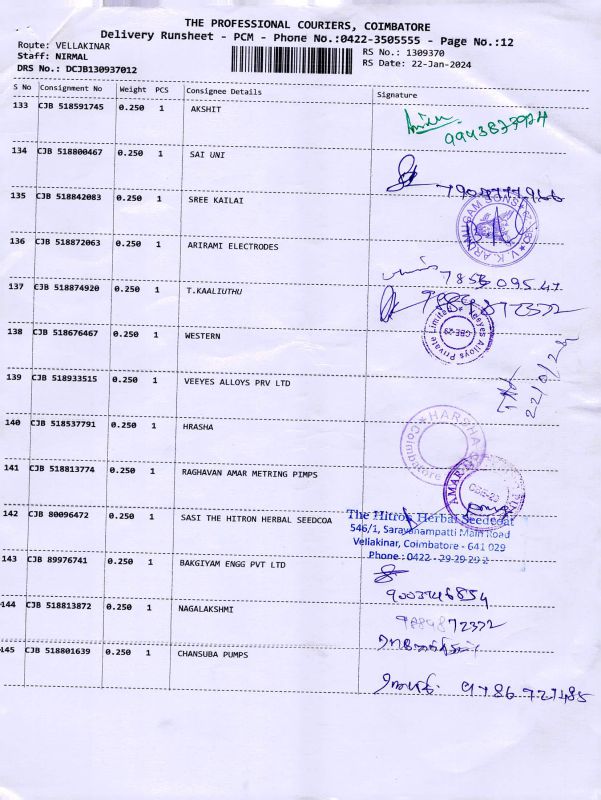 THE PROFESSIONAL COURIERS, COIMBATORE
Delivery Runsheet - PCM - Phone No.:0422-3505555 - Page No.:12
Route: VELLAKINAR
RS No.: 1309370
Staff: NIRMAL
RS Date: 22-Jan-2024
DRS No.: DCJB130937012
S No Consignment No Weight PCS Consignee Details Signature
133 CJB 518591745 0.250 1 AKSHIT
134 CJB 518800467 0.250 1 SAI UNI
135 CJB 518842083 0.250 1 SREE KAILAI
V.K. ARUMUGAM SONS
136 CJB 518872063 0.250 1 ARIRAMI ELECTRODES
137 CJB 518874920 0.250 1 T.KAALIUTHU
138 CJB 518676467 0.250 1 WESTERN
Veeyes Alloys Private Limited
CBE-29
139 CJB 518933515 0.250 1 VEEYES ALLOYS PRV LTD
140 CJB 518537791 0.250 1 HRASHA
HARSHA
Coimbatore
141 CJB 518813774 0.250 1 RAGHAVAN AMAR METRING PIMPS
AMAR
142 CJB 80096472 0.250 1 SASI THE HITRON HERBAL SEEDCOA
The Hitron Herbal Seedcoat
546/1, Saravanampatti Main Road
Vellakinar, Coimbatore - 641 029
Phone : 0422 - 29 29 29 2
143 CJB 89976741 0.250 1 BAKGIYAM ENGG PVT LTD
9003746854
144 CJB 518813872 0.250 1 NAGALAKSHMI
9884872332
145 CJB 518801639 0.250 1 CHANSUBA PUMPS